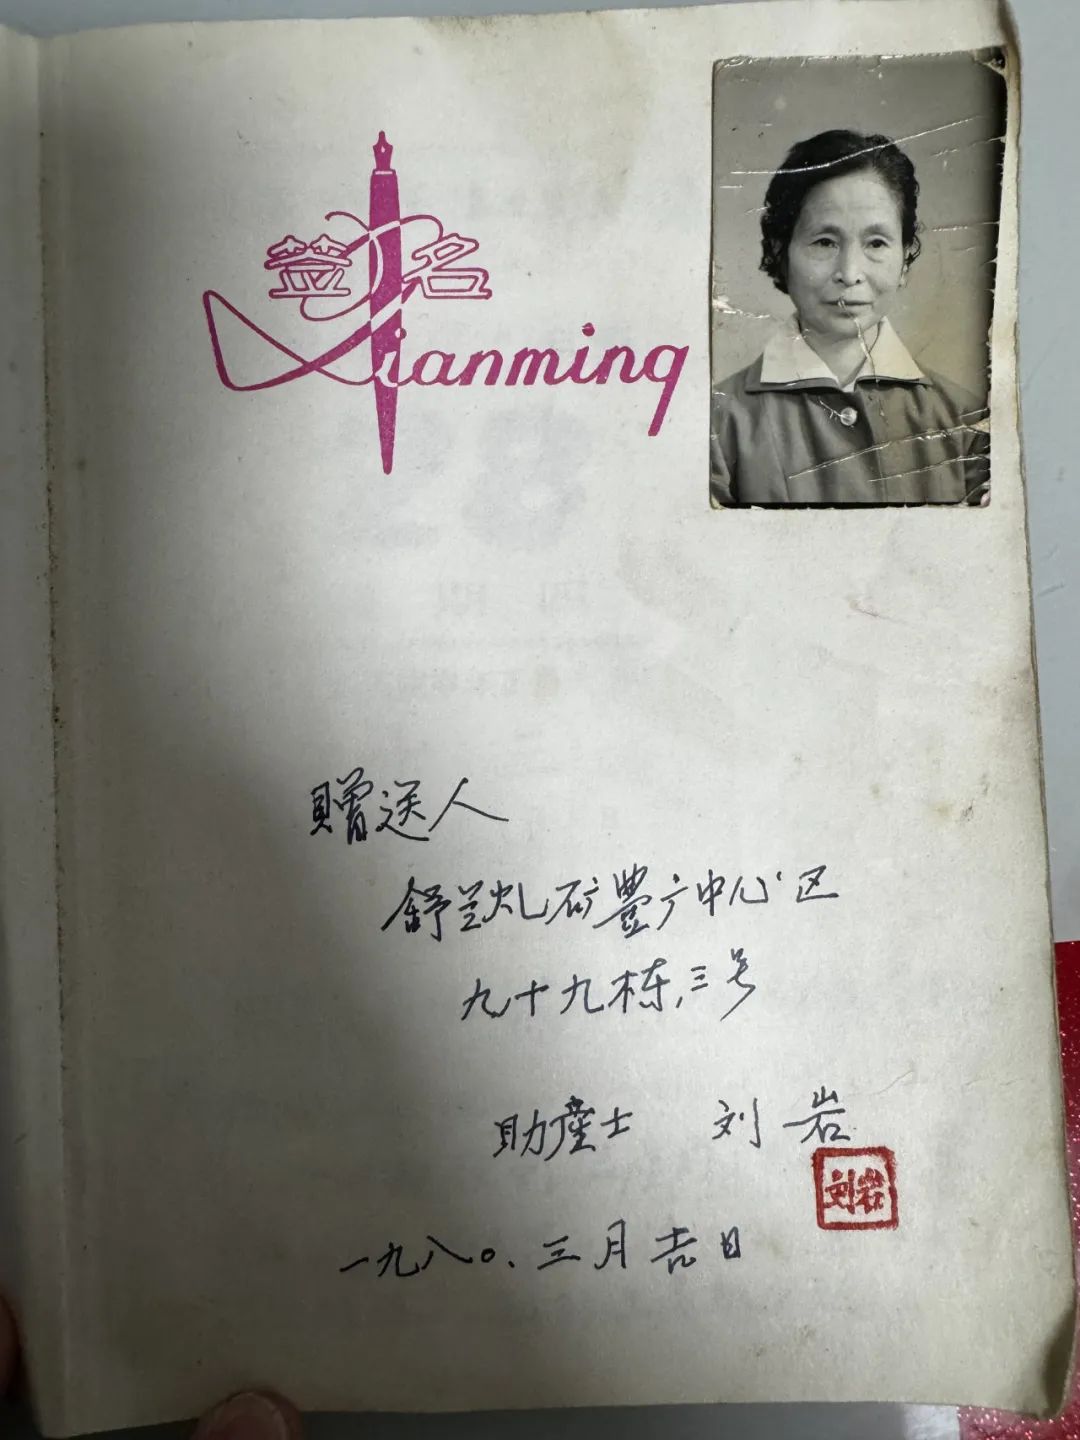 签名
Qianming
贈送人
舒兰矿豐广中心区
九十九栋,三号
助產士 刘岩
刘岩
一九八〇.三月吉日